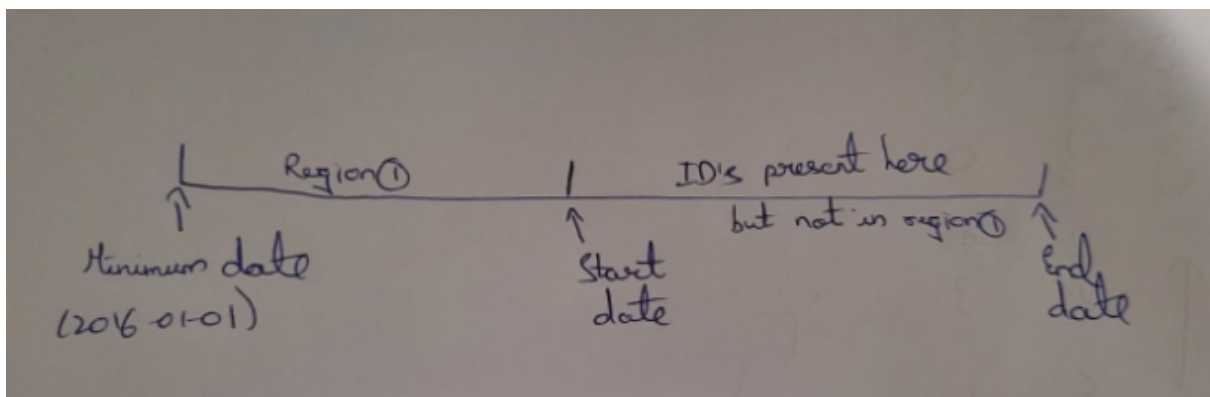 Region ①
ID's present here
but not in region ①
Minimum date
(2016-01-01)
Start
date
End
date